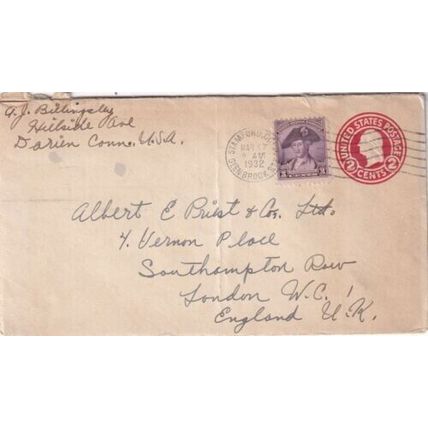 A. J. Billingsley
Hillside Ave
Darien Conn. U.S.A.
STAMFORD, CONN.
MAY 17
AM
1932
GLENBROOK STA.
3 3
UNITED STATES POSTAGE
2 CENTS 2
Albert E Briest & Co. Ltd.
4. Vernon Place
Southampton Row
London W.C. 1
England U.K.